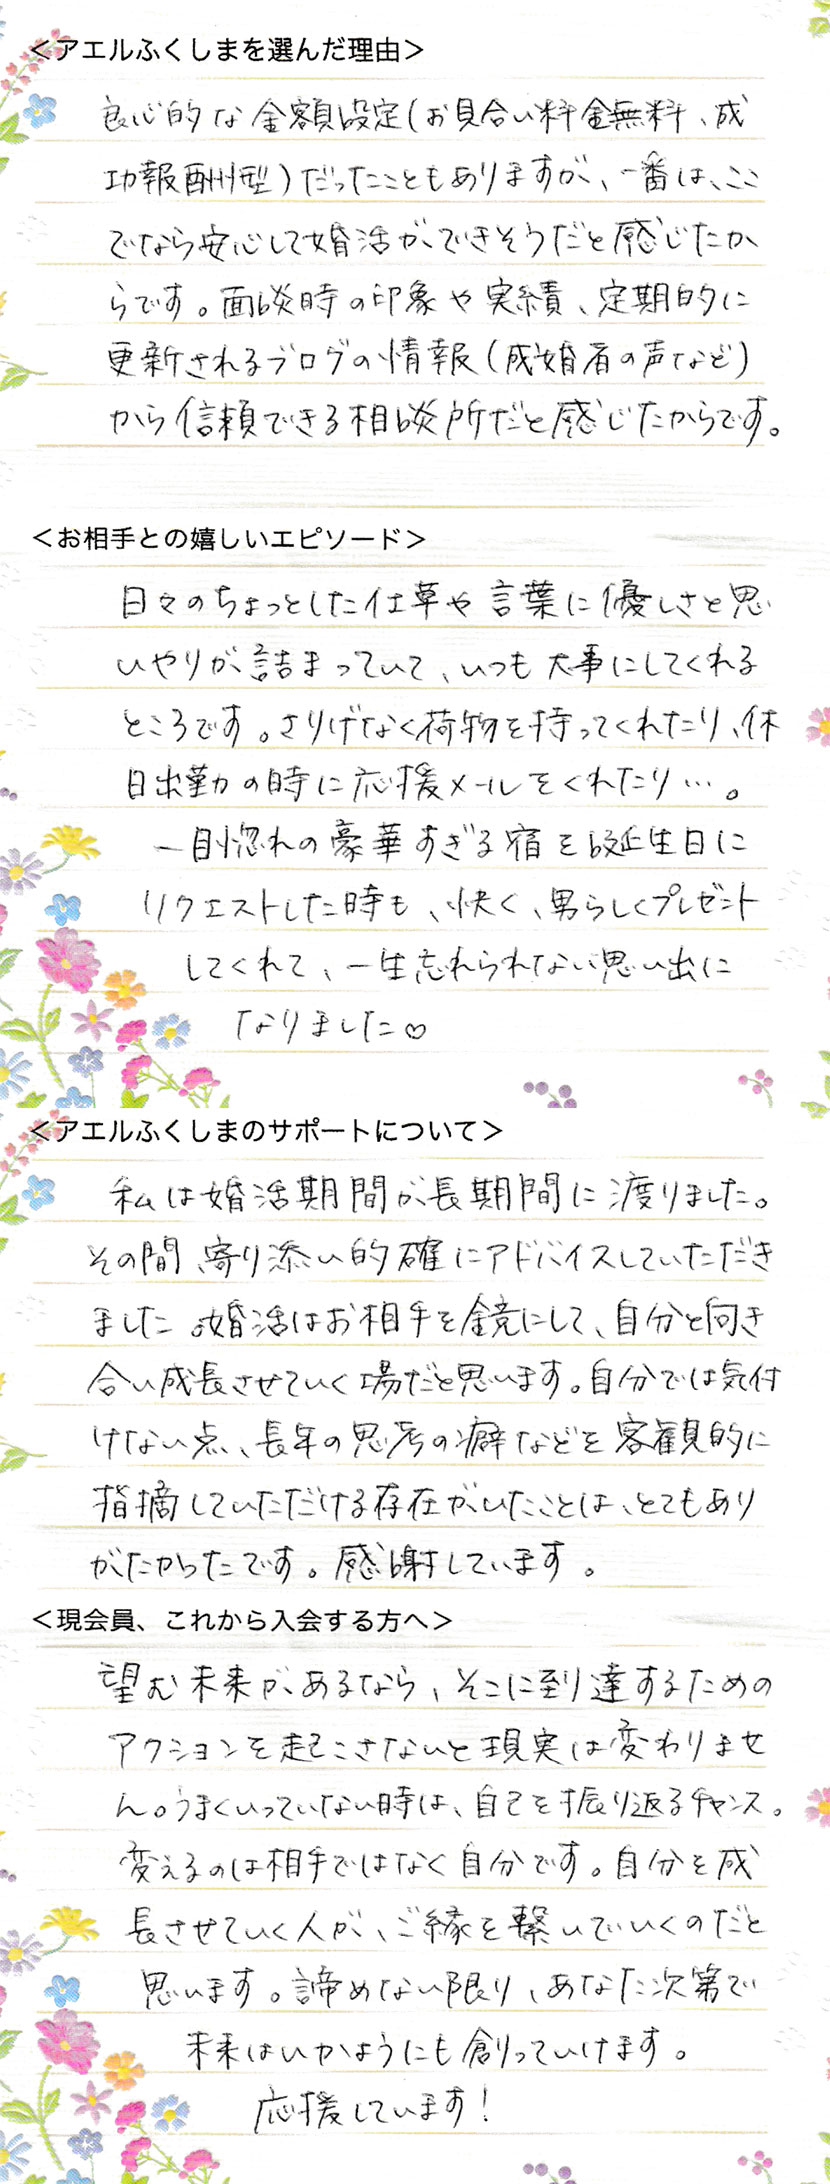 ＜アエルふくしまを選んだ理由＞
良心的な金額設定(お見合い料金無料、成
功報酬型)だったこともありますが、一番は、ここ
でなら安心して婚活ができそうだと感じたか
らです。面談時の印象や実績、定期的に
更新されるブログの情報(成婚者の声など)
から信頼できる相談所だと感じたからです。
＜お相手との嬉しいエピソード＞
日々のちょっとした仕草や言葉に優しさと思
いやりが詰まっていて、いつも大事にしてくれる
ところです。さりげなく荷物を持ってくれたり、休
日出勤の時に応援メールをくれたり…。
一目惚れの豪華すぎる宿を誕生日に
リクエストした時も、快く、男らしくプレゼント
してくれて、一生忘れられない思い出に
なりました♡
＜アエルふくしまのサポートについて＞
私は婚活期間が長期間に渡りました。
その間、寄り添い的確にアドバイスしていただき
ました。婚活はお相手を鏡にして、自分と向き
合い成長させていく場だと思います。自分では気付
けない点、長年の思考の癖などを客観的に
指摘していただける存在がいたことは、とてもあり
がたかったです。感謝しています。
＜現会員、これから入会する方へ＞
望む未来が、あるなら、そこに到達するための
アクションを起こさないと現実は変わりませ
ん。うまくいっていない時は、自己を振り返るチャンス。
変えるのは相手ではなく自分です。自分を成
長させていく人が、ご縁を繋いでいくのだと
思います。諦めない限り、あなた次第で
未来はいかようにも創っていけます。
応援しています!